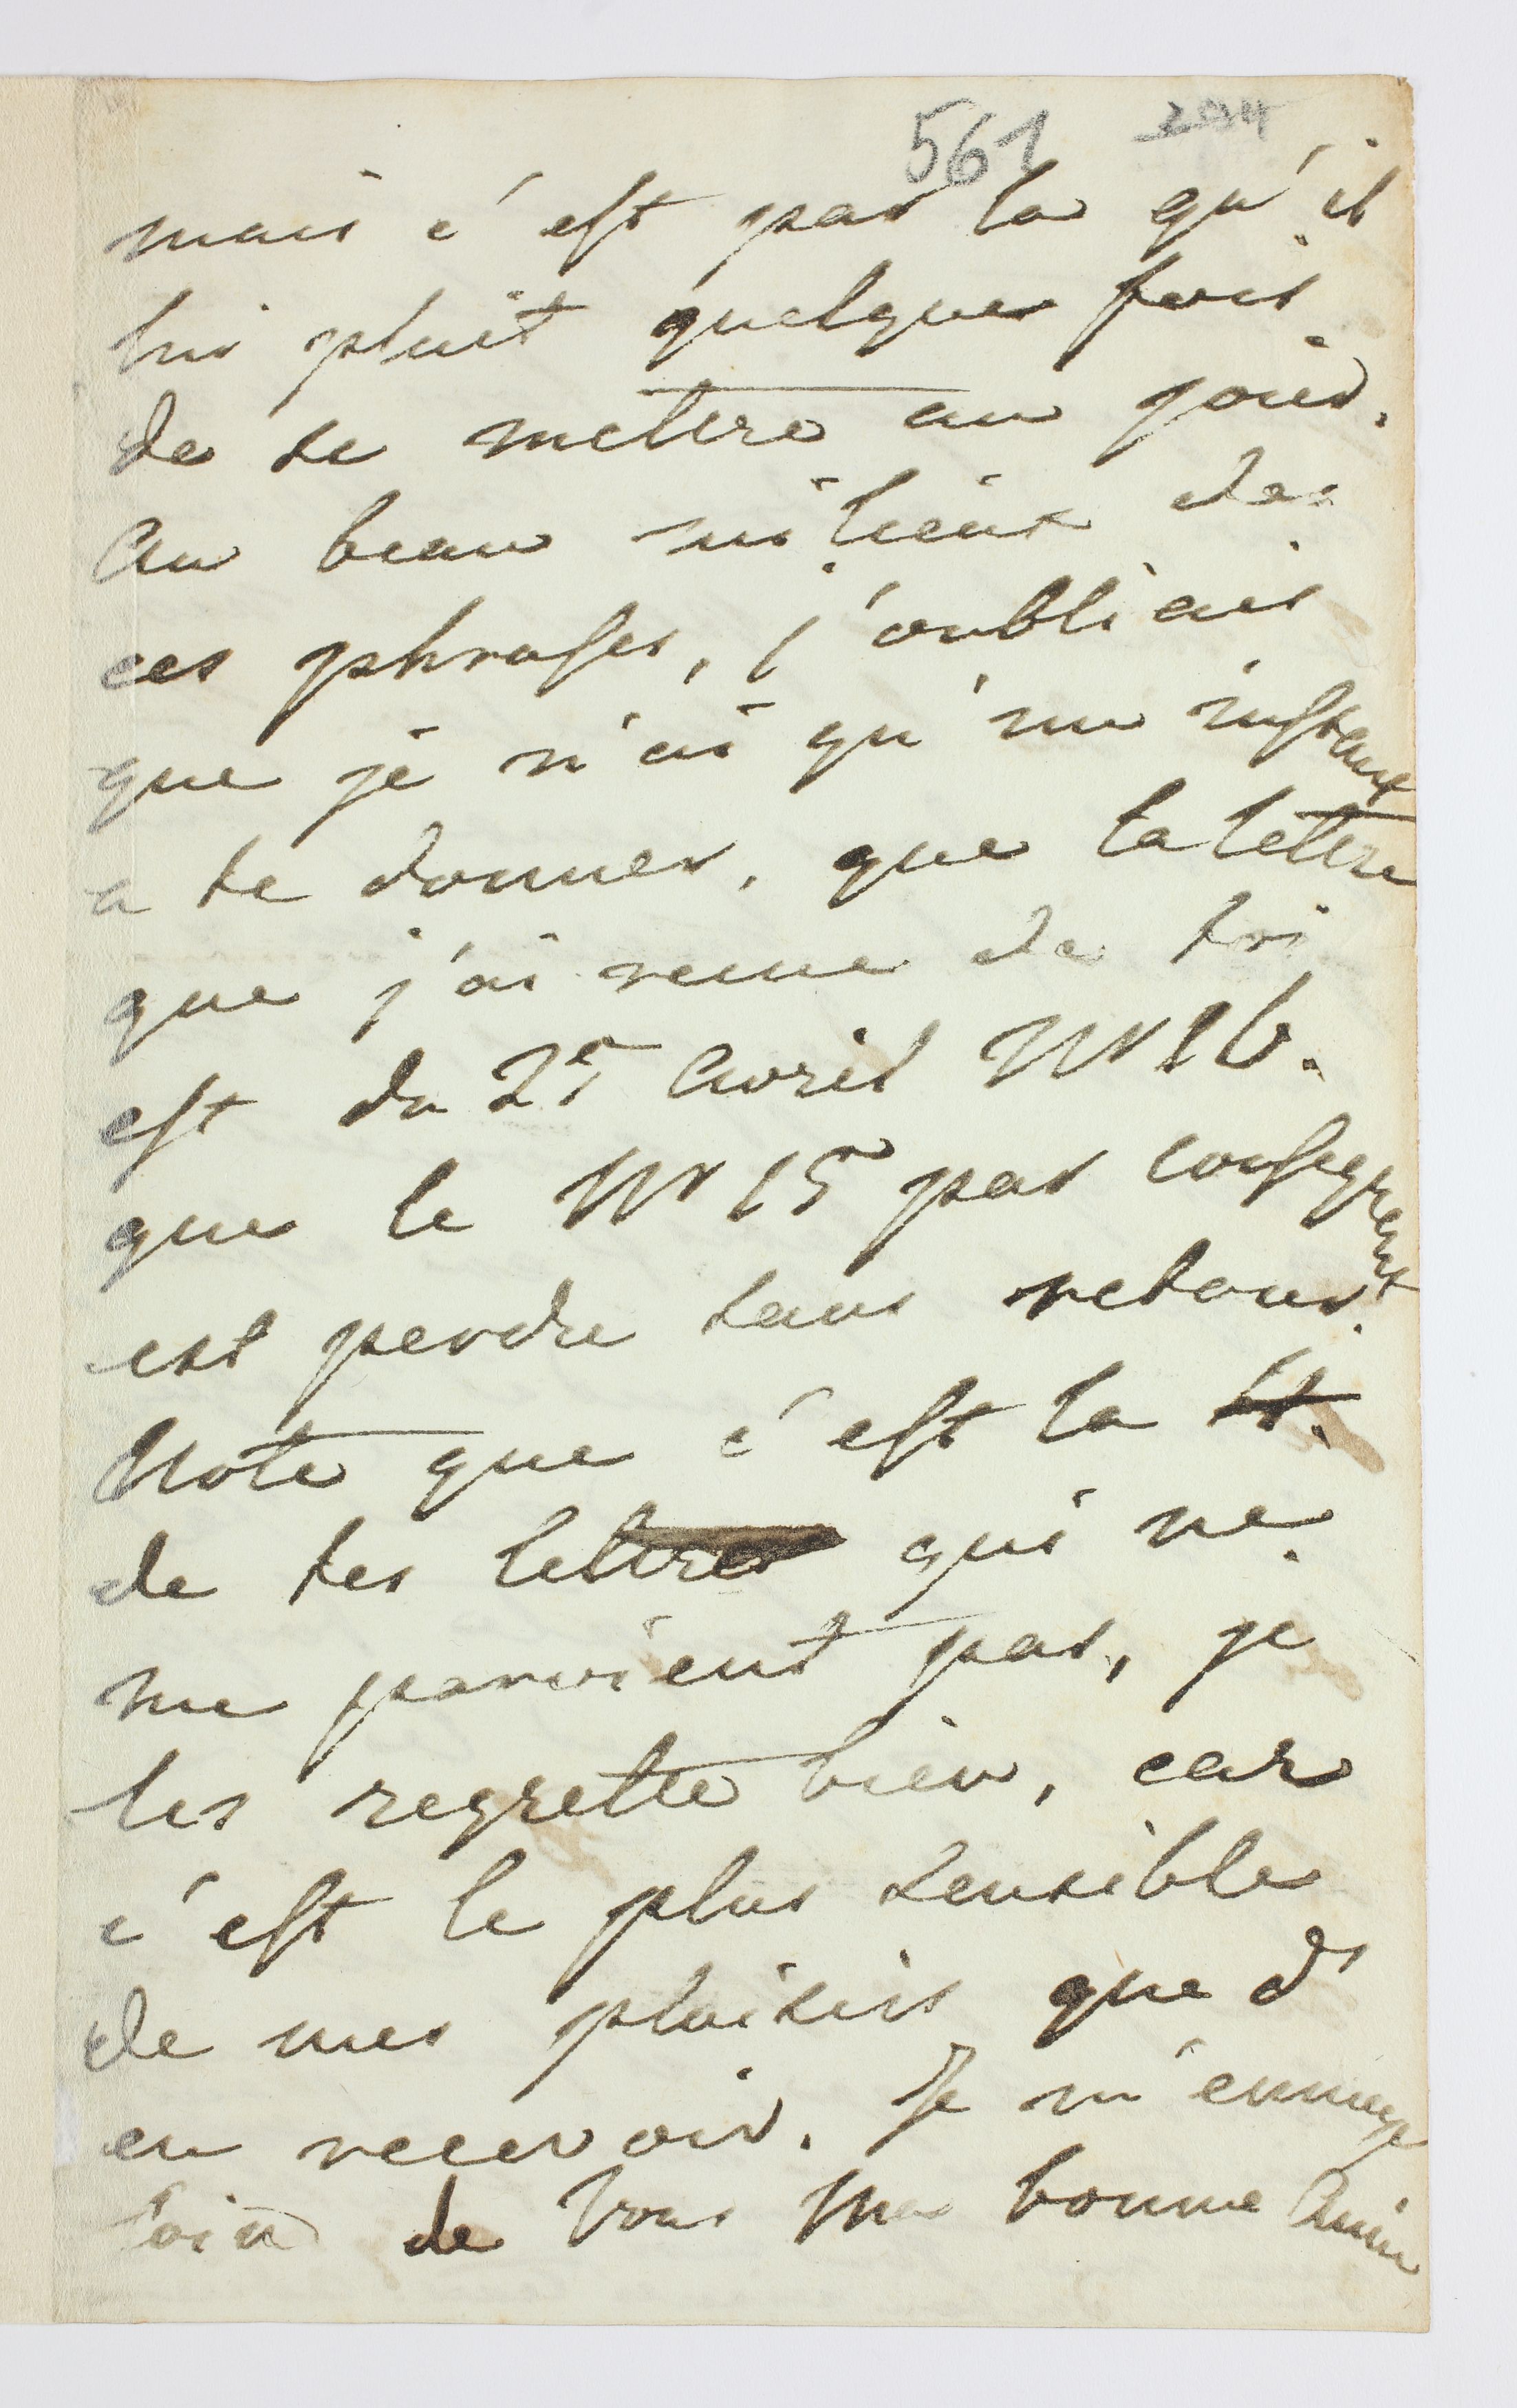 561 294
mais c'est par la qu'il
lui plait quelques fois
de se mettre au jour.
Au beau milieux de
ces phrases, j'oubliais
que je n'ai qu'un instant
a te donner, que ta lettre
que j'ai reçue de toi
est du 25 Avril Nr 16.
que le Nr 15 par consequent
est perdu sans retour.
Note que c'est la
de tes lettres qui ne
me parvient pas, je
les regrette bien, car
c'est le plus sensible
de mes plaisirs que d'
en recevoir. Je m'ennuye
loin de Vous Ma bonne Amie